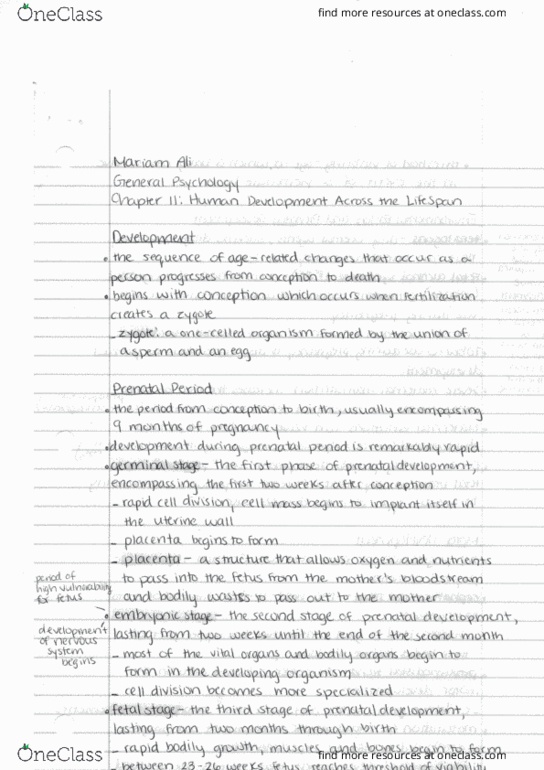 OneClass
find more resources at oneclass.com
Mariam Ali
General Psychology
Chapter 11: Human Development Across the LifeSpan
Development
• the sequence of age-related changes that occur as a
person progresses from conception to death
• begins with conception which occurs when fertilization
creates a zygote
- zygote: a one-celled organism formed by the union of
a sperm and an egg
Prenatal Period
• the period from conception to birth, usually encompasing
9 months of pregnancy
• development during prenatal period is remarkably rapid
• germinal stage - the first phase of prenatal development,
encompassing the first two weeks after conception
- rapid cell division, cell mass begins to implant itself in
the uterine wall
- placenta begins to form
- placenta - a structure that allows oxygen and nutrients
to pass into the fetus from the mother's bloodstream
and bodily wastes to pass out to the mother
period of
high vulnerability
for fetus
• embryonic stage - the second stage of prenatal development,
lasting from two weeks until the end of the second month
development
of nervous
system
begins
- most of the vital organs and bodily organs begin to
form in the developing organism
- cell division becomes more specialized
• fetal stage - the third stage of prenatal development,
lasting from two months through birth
- rapid bodily growth, muscles and bones begin to form
- between 23-26 weeks fetus reaches threshold of viability
OneClass
find more resources at oneclass.com